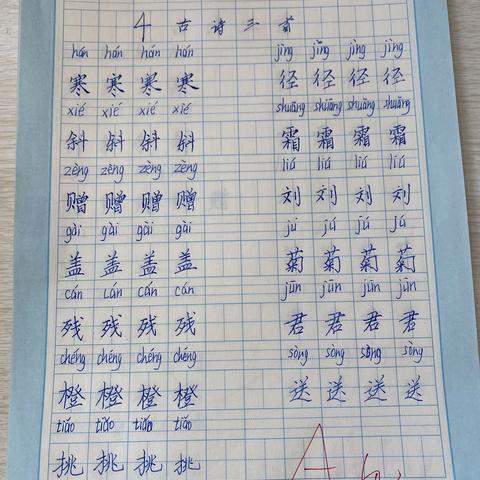 4 古诗三首
hán hán hán hán jìng jìng jìng jìng
寒 寒 寒 寒 径 径 径 径
xié xié xié xié shuāng shuāng shuāng shuāng
斜 斜 斜 斜 霜 霜 霜 霜
zèng zèng zèng zèng liú liú liú liú
赠 赠 赠 赠 刘 刘 刘 刘
gài gài gài gài jú jú jú jú
盖 盖 盖 盖 菊 菊 菊 菊
cán cán cán cán jūn jūn jūn jūn
残 残 残 残 君 君 君 君
chéng chéng chéng chéng sòng sòng sòng sòng
橙 橙 橙 橙 送 送 送 送
tiāo tiāo tiāo tiāo
挑 挑 挑 挑
A